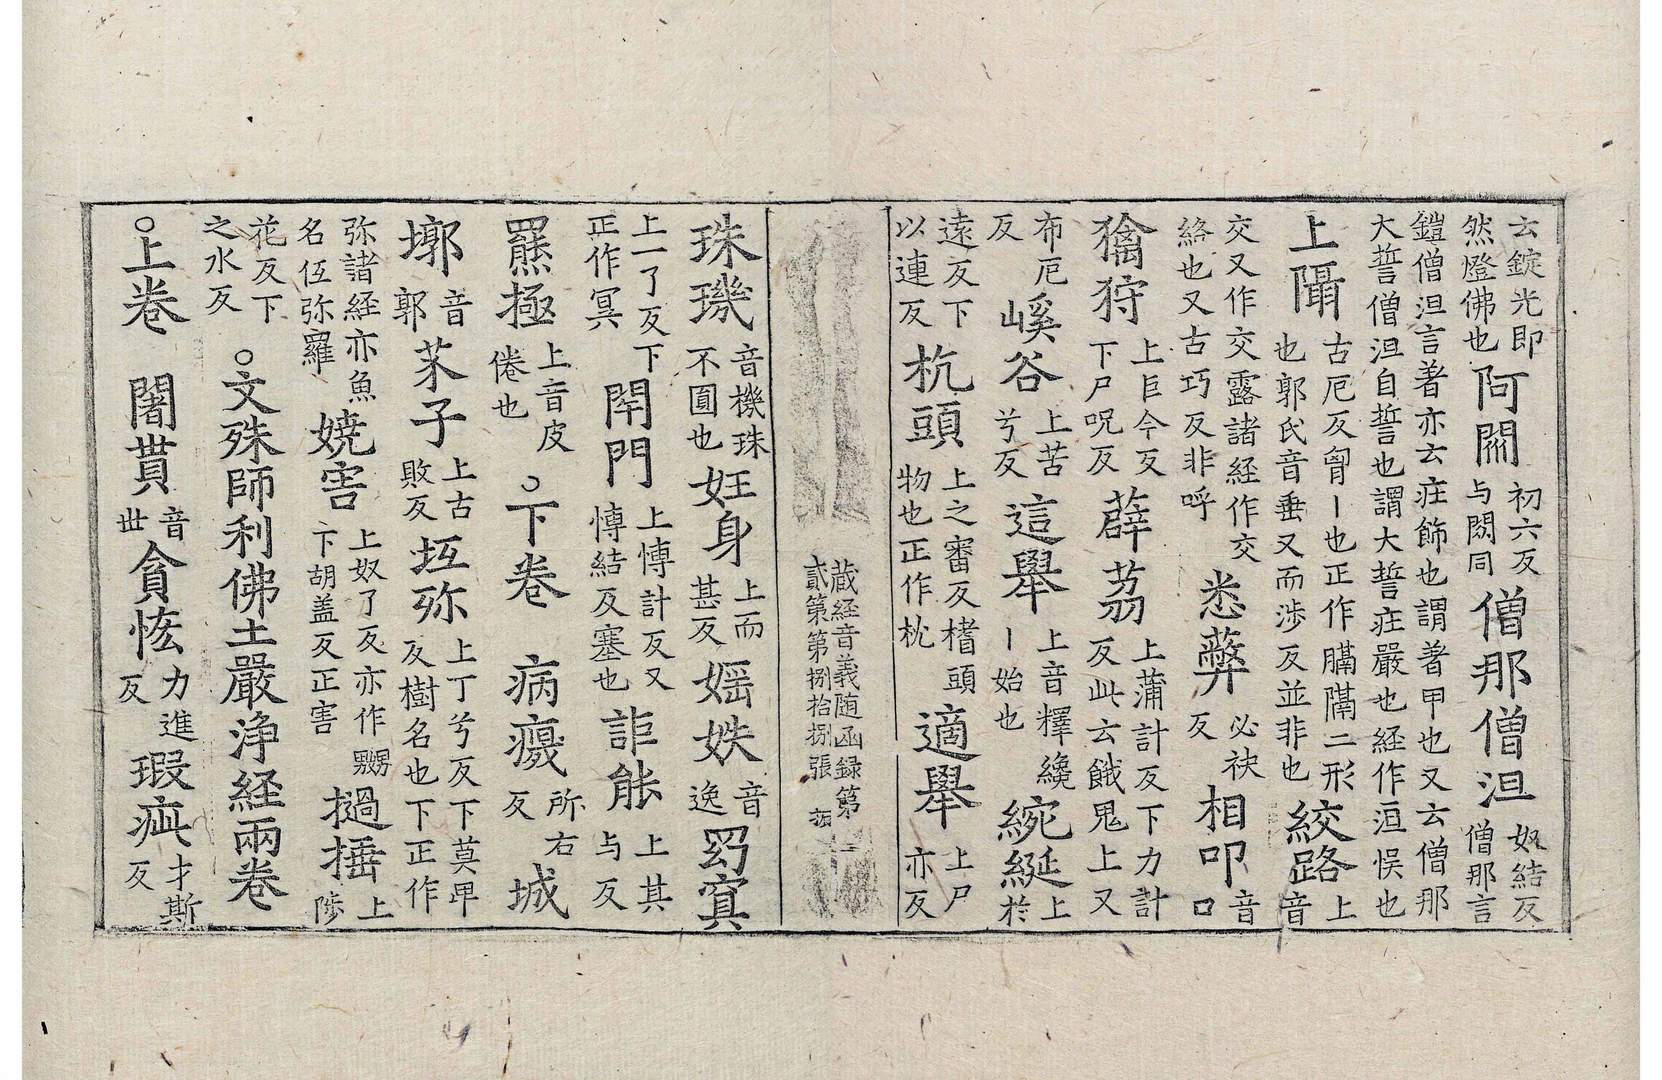 云錠光即然燈佛也阿閦初六反与閦同僧那僧泹奴結反僧那言
鎧僧泹言著亦云庄飾也謂著甲也又云僧那大誓僧泹自誓也謂大誓庄嚴也経作洹悮也
上古厄反丨也正作膈隔二形也郭氏音垂又而涉反並非也絞路上音
交又作交露諸経作交絡也又古巧反非呼悉弊必袂反相叩音口
狩上巨今反下尸呪反薜荔上蒲計反下力計反此云餓鬼上又
布厄反嵠谷上苦兮反這舉上音釋纔丨始也綩綖上於
遠反下以連反杭頭上之審反榰頭物也正作枕適舉上尸亦反
蔵経音義随函録第貳第第捌拾捌張
珠璣音機珠不圓也妊身上而甚反婬妷音逸窈寞
上一了反下正作冥閇門上博計反又博結反塞也詎能上其与反
羆極上音皮倦也○下卷 病瘦所右反城
墎音郭芥子上古敗反坘弥上丁兮反下莫畀反樹名也下正作
弥諸経亦魚名伍弥羅嬈害上奴了反亦作嬲下胡盖反正害撾捶上陟
花反下之水反○文殊師利佛土嚴浄経兩卷
○上卷 闍貰音世貪恡力進反瑕疵才斯反